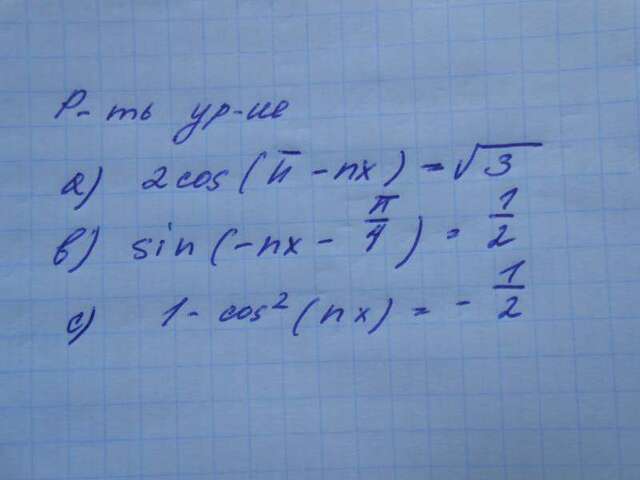 Р-ть ур-ие
а) 2cos(π - nx) = √3
в) sin(-nx - π/4) = 1/2
с) 1 - cos²(nx) = - 1/2